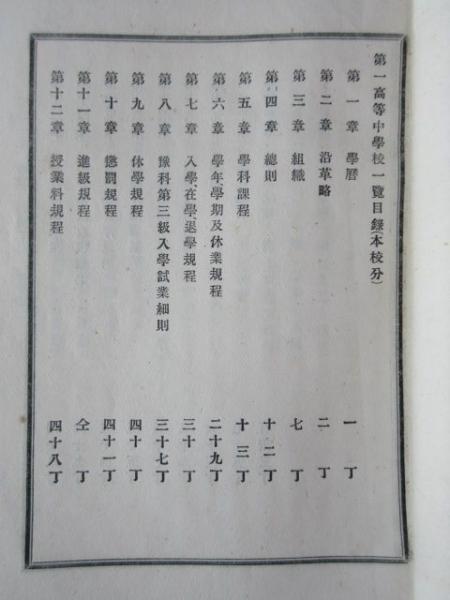 第一高等中學校一覽目錄(本校分)
第一章 學曆 一丁
第二章 沿革略 二丁
第三章 組織 七丁
第四章 總則 十二丁
第五章 學科課程 十三丁
第六章 學年、學期及休業規程 二十九丁
第七章 入學、在學、退學規程 三十丁
第八章 豫科第三級入學試業細則 三十七丁
第九章 休學規程 四十丁
第十章 懲罰規程 四十一丁
第十一章 進級規程 仝丁
第十二章 授業料規程 四十八丁